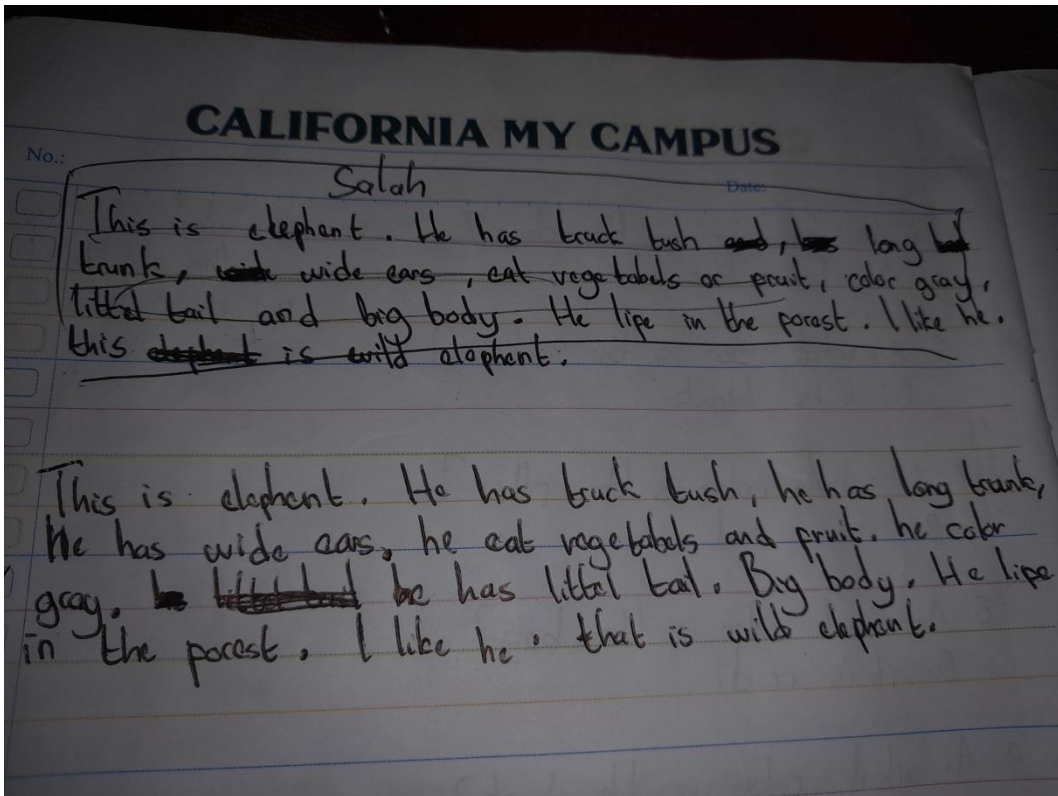 CALIFORNIA MY CAMPUS
No.:
Salah
Date:
This is elephant. He has track tush, long
trunk, wide ears, eat vegetabels or pruit, color gray,
littel tail and big body. He lipe in the porest. I like he.
this is wild elophant.
This is elephant. He has truck tush, he has long trunk,
He has wide ears, he eat vegetabels and pruit. he color
gray. he has littel tail. Big body. He lipe
in the porest. I like he. that is wild elephant.